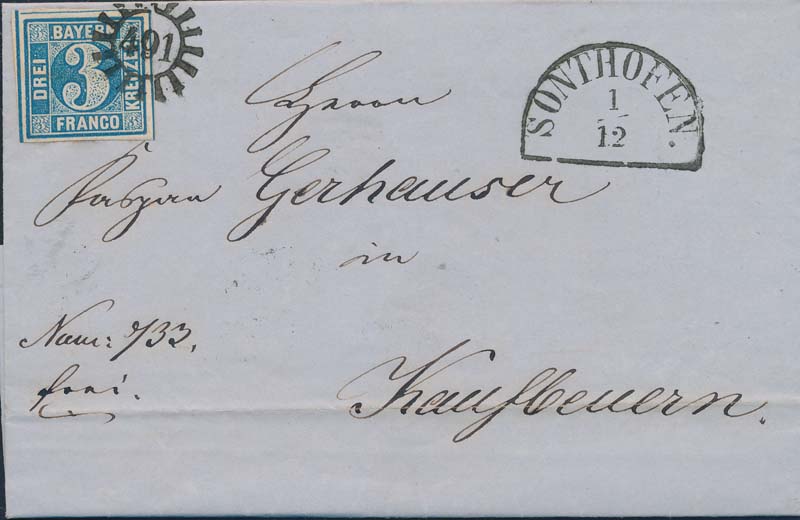 BAYERN
DREI
3
KREUZER
FRANCO
401
SONTHOFEN.
1
12
Herrn
Kaspar Gerhauser
in
Num: 733.
frei.
Kaufbeuern.